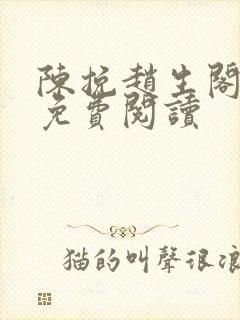 陳挽趙生閣
免費閱讀
猫的叫聲很浪